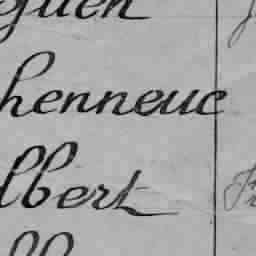 guen
henneuc
lbert